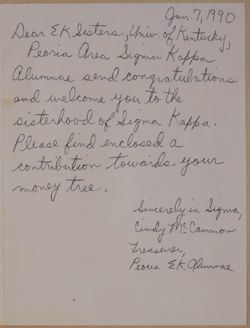 Jan. 7, 1990
Dear ΣK Sisters, Univ of Kentucky,
Peoria Area Sigma Kappa
Alumnae send congratulations
and welcome you to the
sisterhood of Sigma Kappa.
Please find enclosed a
contribution towards your
money tree.
Sincerely in Sigma,
Cindy McCammon
Treasurer,
Peoria ΣK Alumnae